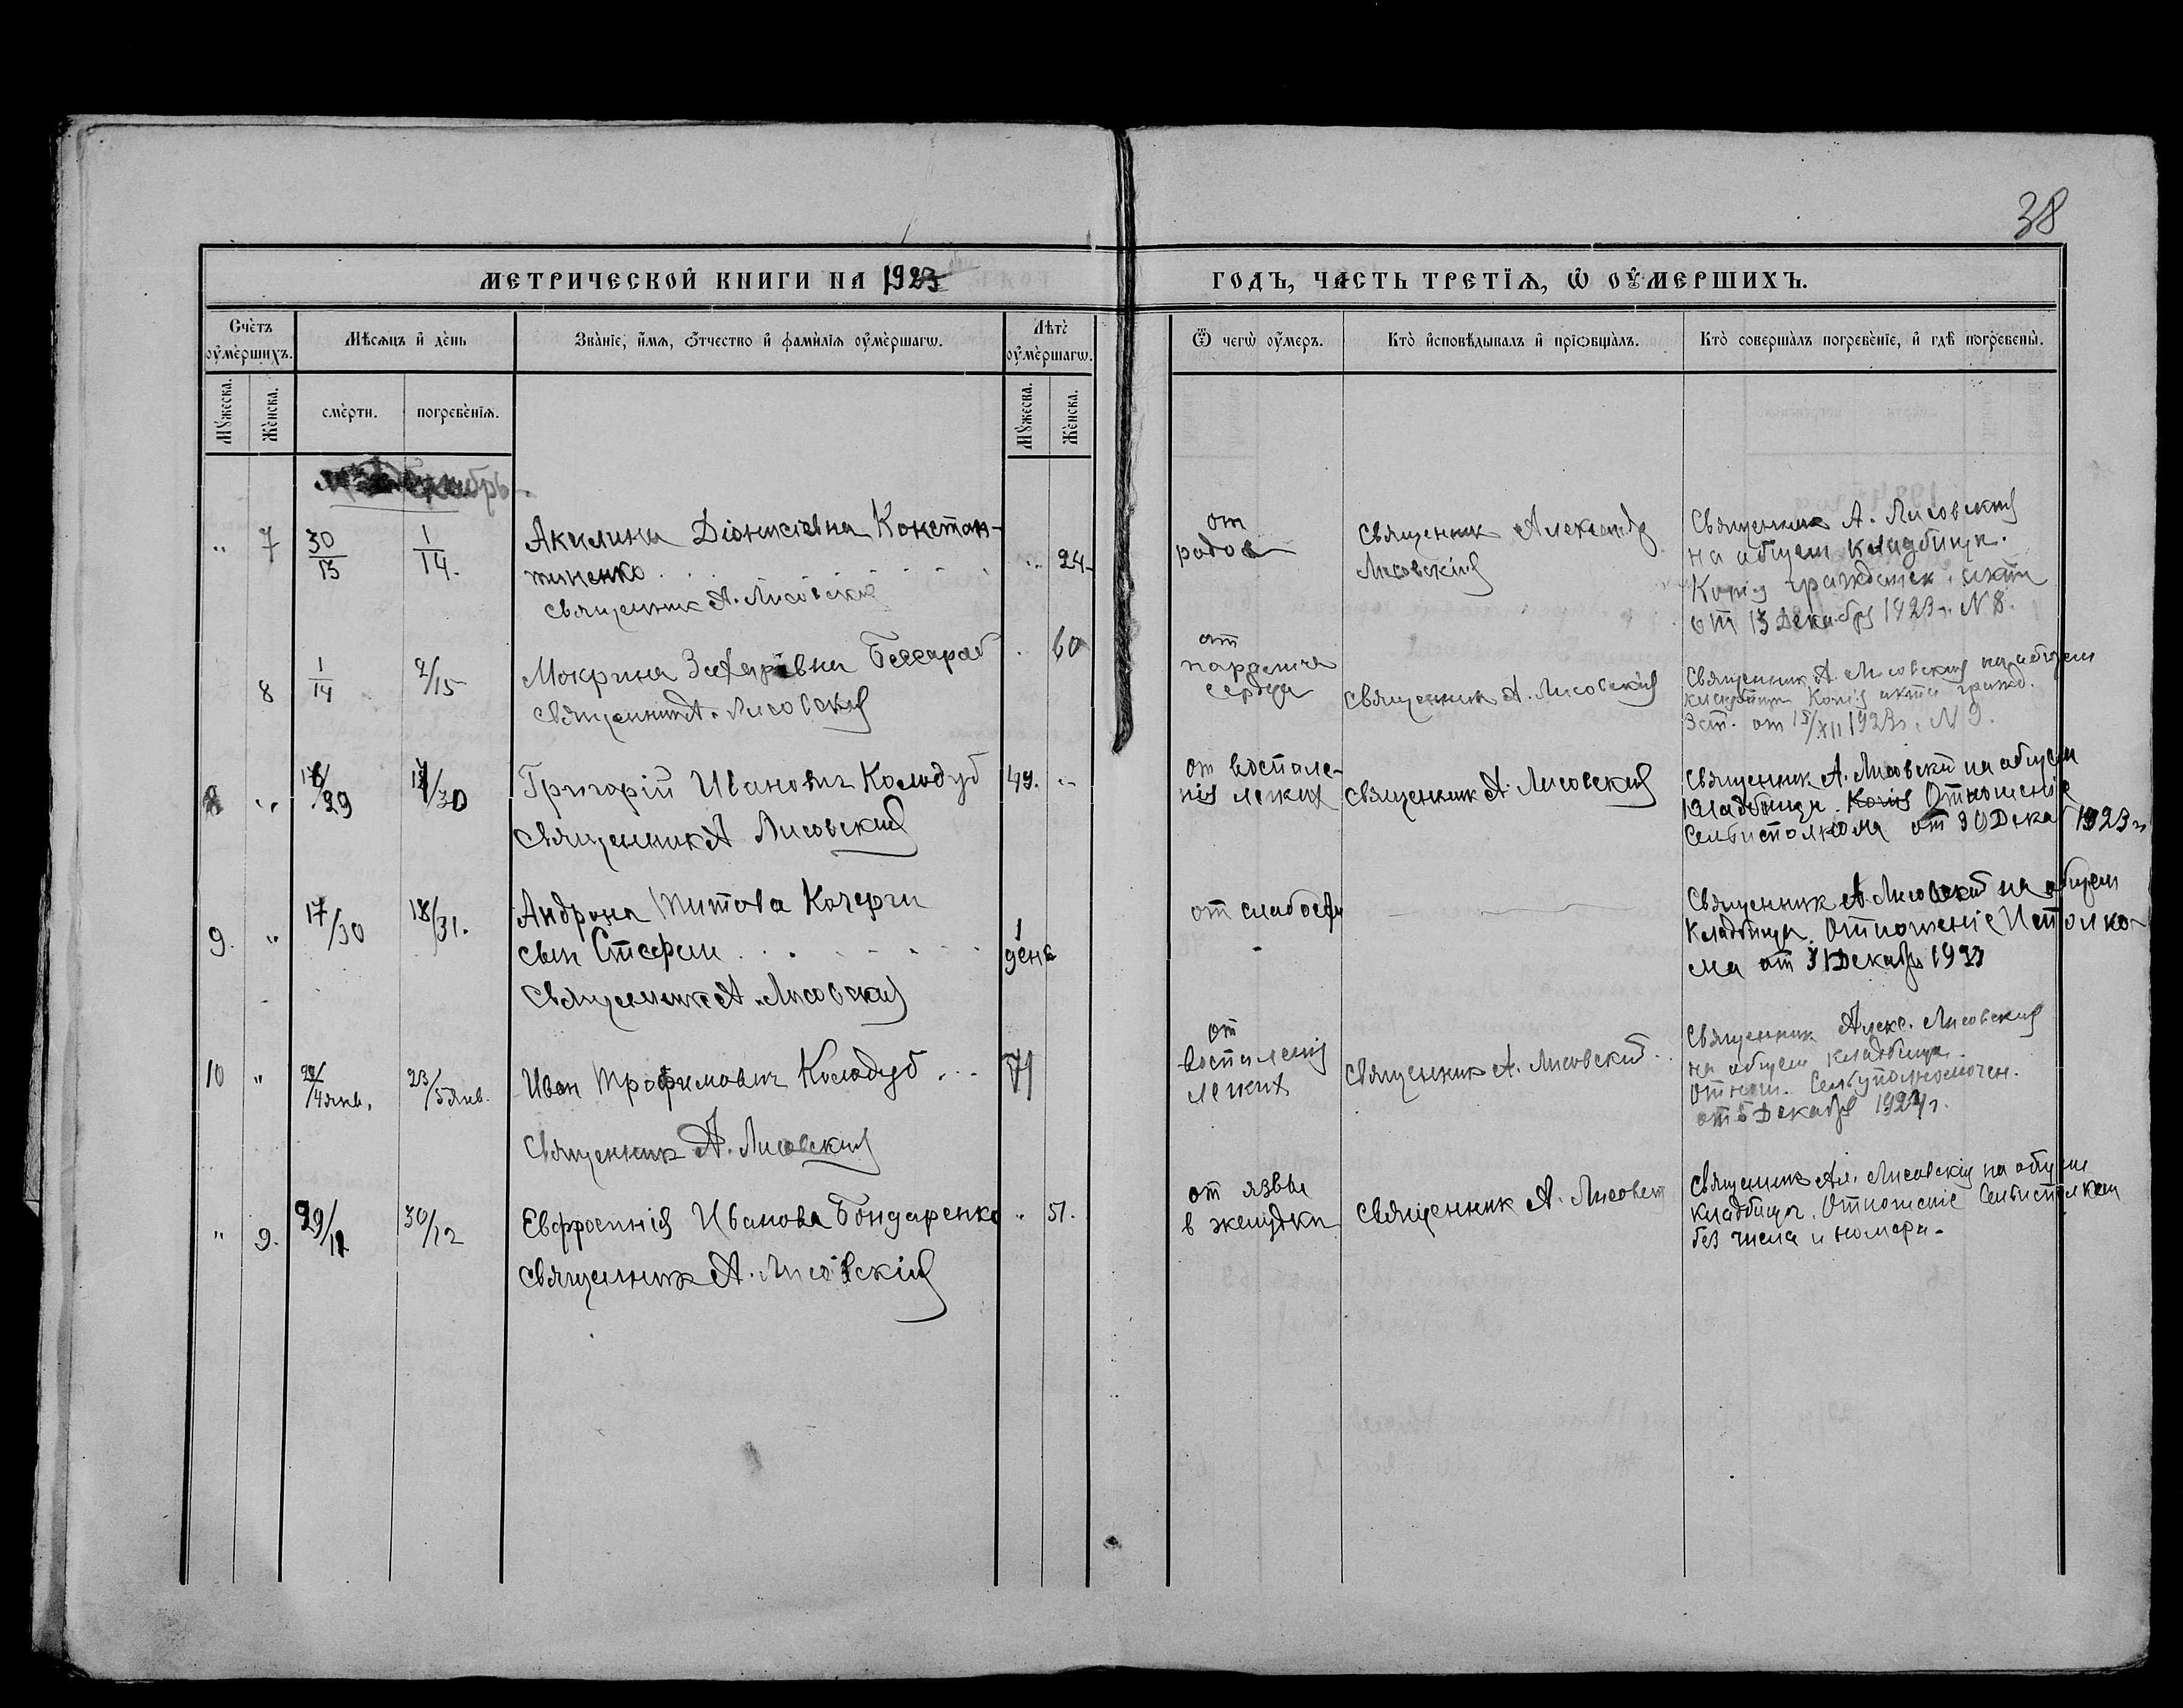 38
МЕТРИЧЕСКОЙ КНИГИ НА 1923 ГОДЪ, ЧАСТЬ ТРЕТІѦ, Ѡ ОУМЕРШИХЪ.
Счетъ оумершихъ.
Мѣсяцъ и день
Званіе, имя, отчество и фамилія оумершагѡ.
Лѣтъ оумершагѡ.
Ѿ чегѡ оумеръ.
Кто исповѣдывалъ и пріобщалъ.
Кто совершалъ погребеніе, и гдѣ погребены.
Мужеска.
Женска.
смерти.
погребенія.
Мужеска.
Женска.
„ 7 30/13 1/14. Акилина Діонисіевна Констан-
тиненко „ 24
Священник А. Лисовскій
от
родов
Священник Александр
Лисовскій
Священник А. Лисовский
на общем кладбище.
Копия гражданск. акта
от 13 Декабря 1923 г. N 8.
8 1/14 2/15 Мокрина Захаріевна Бессараб 60
Священник А. Лисовский
от
паралича
сердца
Священник А. Лисовский
Священник А. Лисовский на общем
кладбище Копія акта гражд.
Зап. от 15/XII 1923 г. N 9.
8 „ 16/29 17/30 Григорій Иванович Колодуб 49. „
Священник А Лисовский
от воспале-
нія легких
Священник А. Лисовский
Священник А. Лисовский на общем
кладбище. Копія Отношеніе
Сельисполкома от 30 Дека 1923 г
9. „ 17/30 18/31. Андрона Титова Кочерги
сын Стефан 1
день
Священник А. Лисовский
от слабости
Священник А. Лисовский на общем
кладбище. Отношеніе Исполко-
ма от 31 Декабря 1923
10 „ 22/4 янв. 23/5 янв. Иван Трофимович Колодуб 71
Священник А. Лисовский
от
воспаленія
легких
Священник А. Лисовский
Священник Алекс. Лисовский
на общем кладбище.
Отнош. Сельуполномочен.
от 5 Декабря 1924 г.
„ 9. 29/12 30/12 Евфросинія Иванова Бондаренко „ 51.
Священник А. Лисовскій
от язвы
в желудке
Священник А. Лисовск
Священник Ал. Лисовскій на общем
кладбище. Отношеніе Сельисполком
без числа и номера.